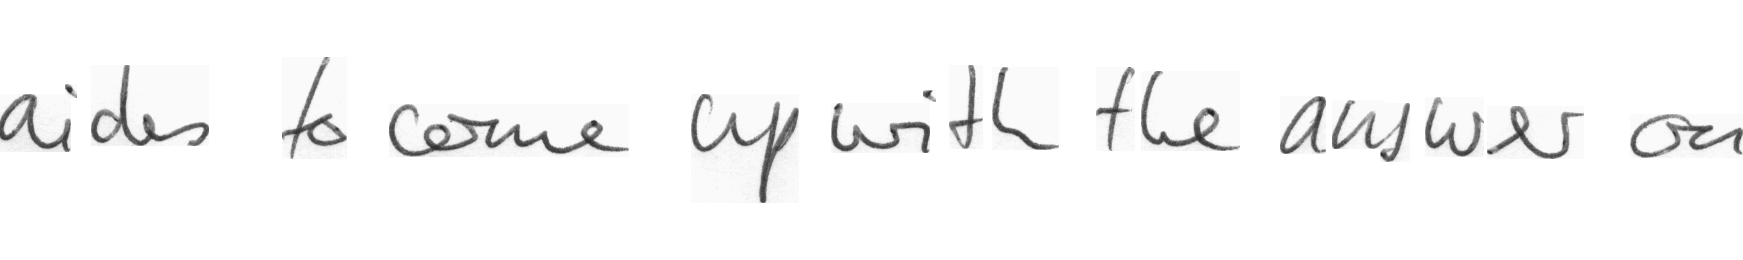 aides to come up with the answer on